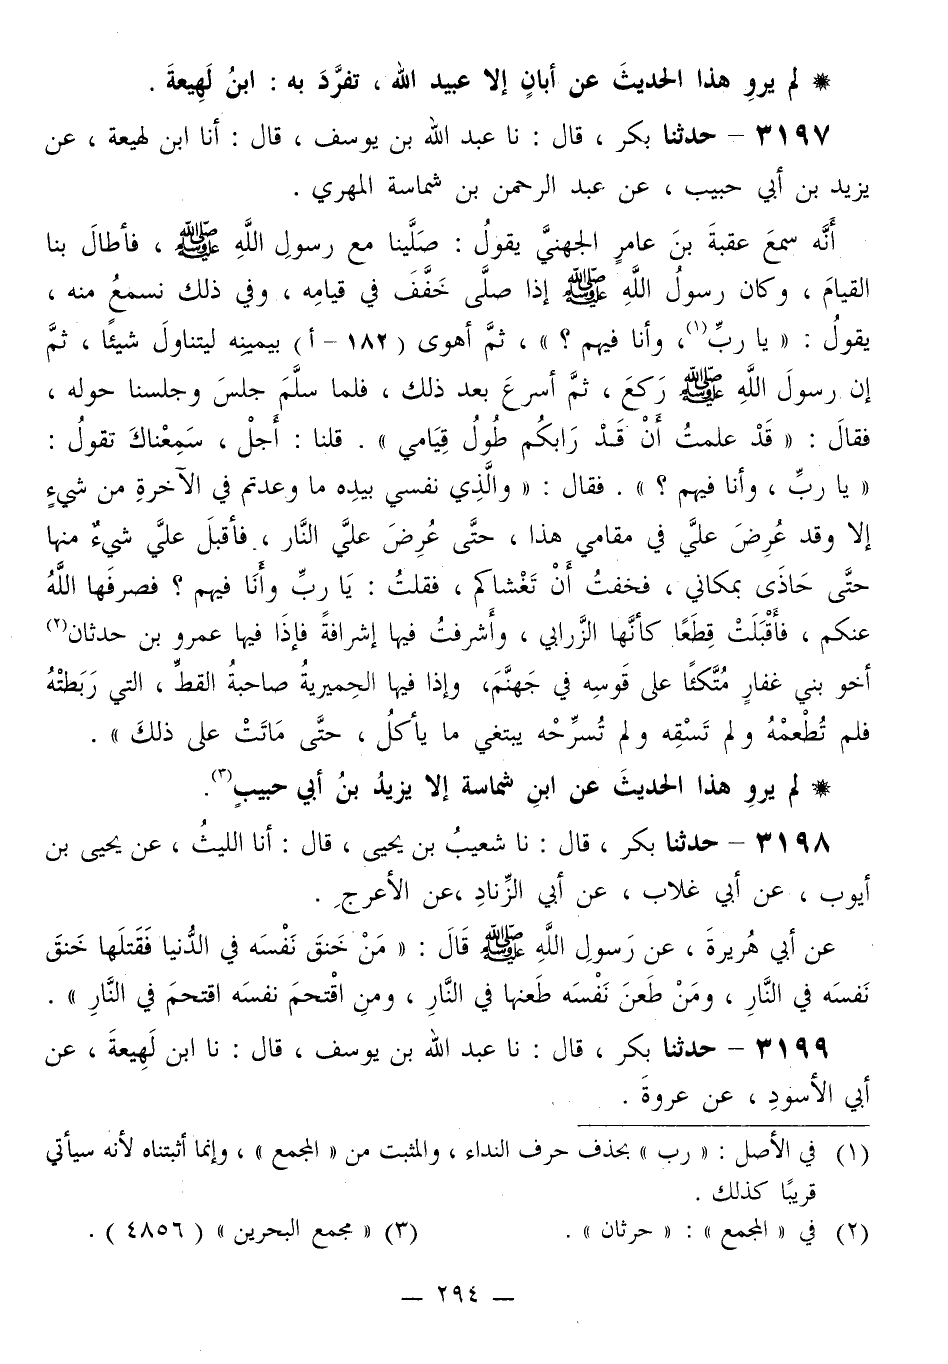 * لم يروِ هذا الحديثَ عن أبانٍ إلا عبيد الله ، تفرَّدَ به : ابنُ لَهِيعةَ .
٣١٩٧ – حدثنا بكر ، قال : نا عبد الله بن يوسف ، قال : أنا ابن لهيعة ، عن
يزيد بن أبي حبيب ، عن عبد الرحمن بن شماسة المهري .
أَنَّه سمعَ عقبةَ بنَ عامرٍ الجهنيَّ يقولُ : صَلَّينا مع رسولِ اللَّهِ ﷺ ، فأطالَ بنا
القيامَ ، وكان رسولُ اللَّهِ ﷺ إذا صلَّى خَفَّفَ في قيامِه ، وفي ذلك نسمعُ منه ،
يقولُ : « يا ربِّ(١)، وأنا فيهم ؟ » ، ثمَّ أهوى ( ١٨٢ – أ ) بيمينِه ليتناولَ شيئًا ، ثمَّ
إن رسولَ اللَّهِ ﷺ رَكعَ ، ثمَّ أسرعَ بعد ذلك ، فلما سلَّمَ جلسَ وجلسنا حوله ،
فقالَ : « قَدْ علمتُ أَنْ قَـدْ رَابكُم طُولُ قِيَامي » . قلنا : أَجلْ ، سَمِعْناكَ تقولُ :
« يا ربِّ ، وأنا فيهم ؟ » . فقال : « والَّذِي نفسي بيدِه ما وعدتم في الآخرةِ من شيءٍ
إلا وقد عُرِضَ عليَّ في مقامي هذا ، حتَّى عُرِضَ عليَّ النَّار ، فأقبلَ عليَّ شيءٌ منها
حتَّى حَاذَى بمكاني ، فخفتُ أَنْ تَغْشاكم ، فقلتُ : يَا ربِّ وأَنَا فيهم ؟ فصرفَها اللَّهُ
عنكم ، فأَقْبَلَتْ قِطَعًا كأنَّها الزَّرابي ، وأَشرفتُ فيها إشرافةً فإذَا فيها عمرو بن حدثان(٢)
أخو بني غفارٍ مُتَّكئًا على قَوسِه في جَهنَّمَ، وإذا فيها الحِميريةُ صاحبةُ القطِّ ، التي رَبَطتْهُ
فلم تُطْعمْهُ و لم تَسْقِه و لم تُسرِّحْه يبتغي ما يأكلُ ، حتَّى مَاتَتْ على ذلكَ » .
* لم يروِ هذا الحديثَ عن ابنِ شماسة إلا يزيدُ بنُ أبي حبيبٍ(٣).
٣١٩٨ – حدثنا بكر ، قال : نا شعيبُ بن يحيى ، قال : أنا الليثُ ، عن يحيى بن
أيوب ، عن أبي غلاب ، عن أبي الزِّنادِ ،عن الأعرجِ .
عن أبي هُريرةَ ، عن رَسولِ اللَّهِ ﷺ قَالَ : « مَنْ خَنقَ نَفْسَه في الدُّنيا فَقَتلَها خَنقَ
نَفسَه في النَّارِ ، ومَنْ طَعنَ نَفْسَه طَعنها في النَّارِ ، ومنِ اقْتحمَ نفسَه اقتحمَ في النَّارِ » .
٣١٩٩ – حدثنا بكر ، قال : نا عبد الله بن يوسف ، قال : نا ابن لَهِيعةَ ، عن
أبي الأسودِ ، عن عروةَ .
(١) في الأصل : « رب » بحذف حرف النداء ، والمثبت من « المجمع » ، وإنما أثبتناه لأنه سيأتي
قريبًا كذلك .
(٢) في « المجمع » : « حرثان » . (٣) « مجمع البحرين » ( ٤٨٥٦ ) .
— ٢٩٤ —